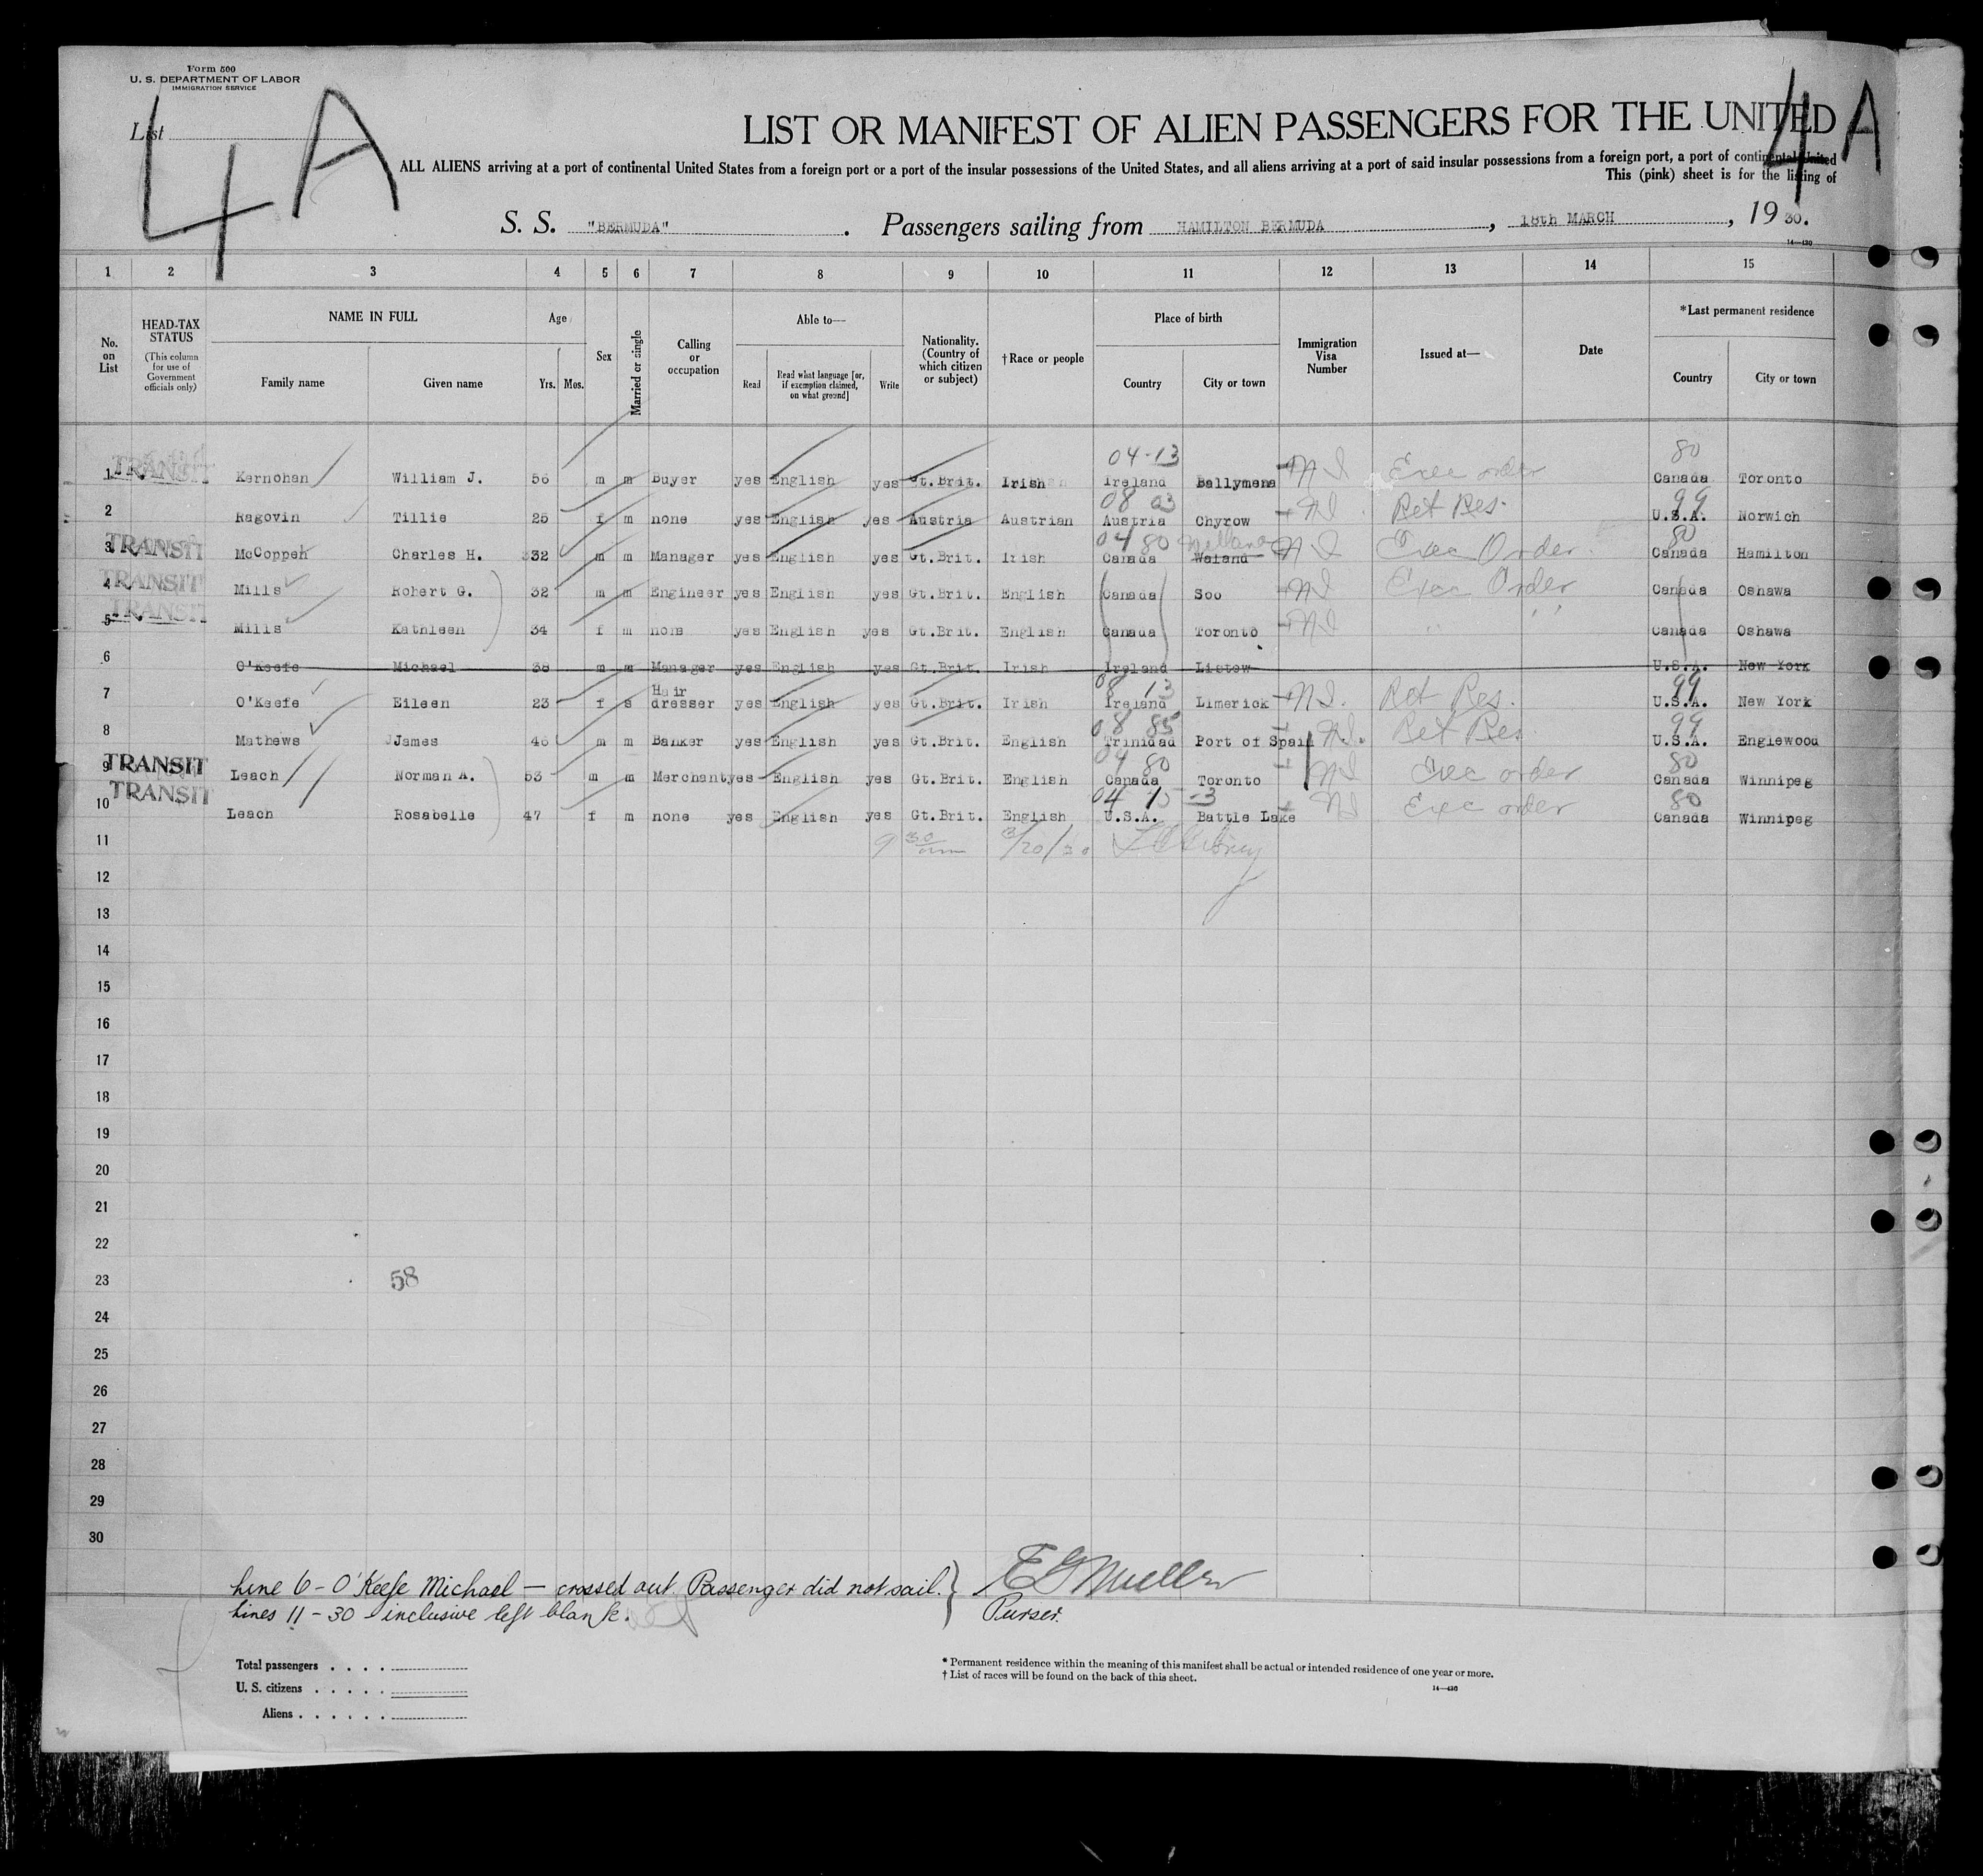 Form 500
U. S. DEPARTMENT OF LABOR
IMMIGRATION SERVICE
List
4A
4A
LIST OR MANIFEST OF ALIEN PASSENGERS FOR THE UNITED
ALL ALIENS arriving at a port of continental United States from a foreign port or a port of the insular possessions of the United States, and all aliens arriving at a port of said insular possessions from a foreign port, a port of continental United
This (pink) sheet is for the listing of
S. S. "BERMUDA". Passengers sailing from HAMILTON BERMUDA, 18th MARCH, 1930.
14—430
1 2 3 4 5 6 7 8 9 10 11 12 13 14 15
No. on List
HEAD-TAX STATUS (This column for use of Government officials only)
NAME IN FULL Family name Given name
Age Yrs. Mos.
Sex
Married or single
Calling or occupation
Able to— Read Read what language [or, if exemption claimed, on what ground] Write
Nationality. (Country of which citizen or subject)
†Race or people
Place of birth Country City or town
Immigration Visa Number
Issued at—
Date
*Last permanent residence Country City or town
04-13 80
1 TRANSIT Kernohan William J. 56 m m Buyer yes English yes Gt.Brit. Irish Ireland Ballymena NI Exec order Canada Toronto
08 03 99
2 Ragovin Tillie 25 f m none yes English yes Austria Austrian Austria Chyrow NI Ret Res. U.S.A. Norwich
04 80 Welland 80
3 TRANSIT McCoppen Charles H. 32 m m Manager yes English yes Gt.Brit. Irish Canada Waland NI Exec Order Canada Hamilton
4 TRANSIT Mills Robert G. 32 m m Engineer yes English yes Gt.Brit. English Canada Soo NI Exec Order Canada Oshawa
5 TRANSIT Mills Kathleen 34 f m none yes English yes Gt.Brit. English Canada Toronto NI " " Canada Oshawa
6 O'Keefe Michael 38 m m Manager yes English yes Gt.Brit. Irish Ireland Listow U.S.A. New York
08 13 99
7 O'Keefe Eileen 23 f s Hair dresser yes English yes Gt.Brit. Irish Ireland Limerick NI. Ret Res. U.S.A. New York
08 85 99
8 Mathews James 46 m m Banker yes English yes Gt.Brit. English Trinidad Port of Spain NI. Ret Res U.S.A. Englewood
04 80 80
9 TRANSIT Leach Norman A. 53 m m Merchant yes English yes Gt.Brit. English Canada Toronto NI Exec order Canada Winnipeg
04 15-3 80
10 TRANSIT Leach Rosabelle 47 f m none yes English yes Gt.Brit. English U.S.A. Battle Lake NI Exec order Canada Winnipeg
11 9 30 am 3/20/30
12
13
14
15
16
17
18
19
20
21
22
23 58
24
25
26
27
28
29
30
Line 6 - O'Keefe Michael — crossed out. Passenger did not sail. } E G Mueller
Lines 11 - 30 - inclusive left blank. Purser.
Total passengers . . . .
U. S. citizens . . . . .
Aliens . . . . . .
* Permanent residence within the meaning of this manifest shall be actual or intended residence of one year or more.
† List of races will be found on the back of this sheet.
14—430